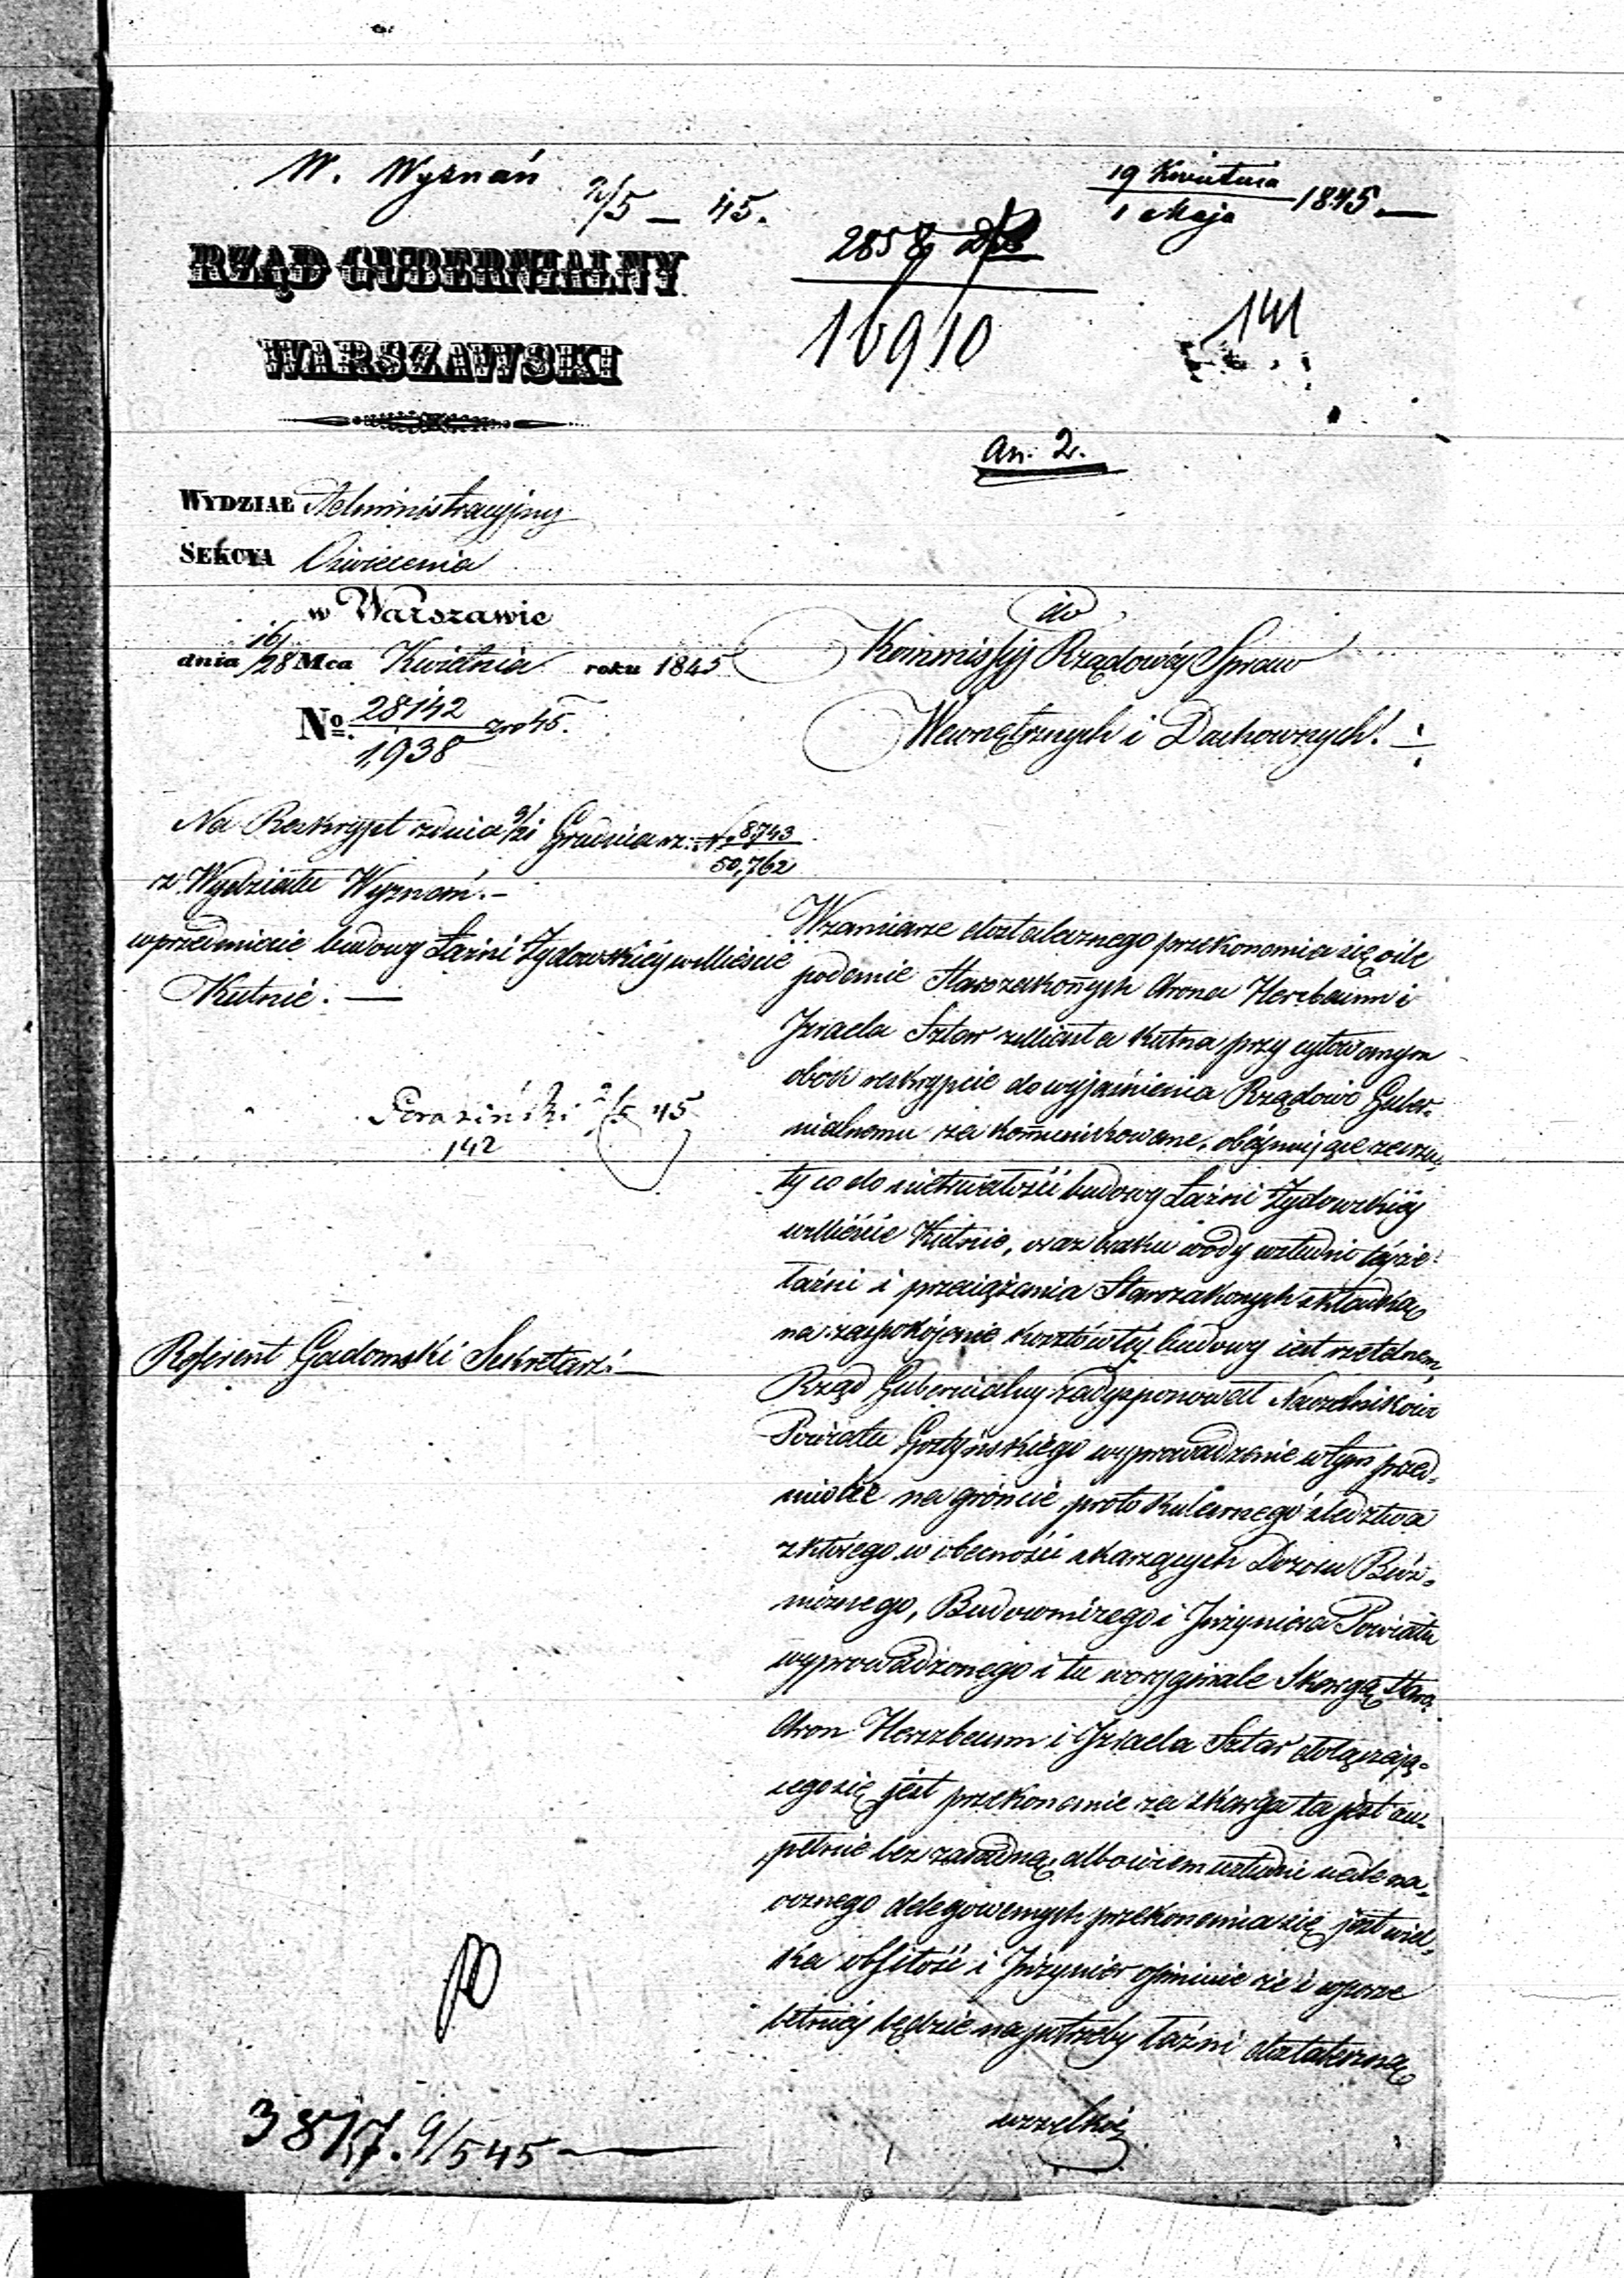 W. Wyznań
2/5 – 45.
19 Kwietnia
1 Maja 1845 —
2858
16910
141
RZĄD GUBERNIALNY
WARSZAWSKI
an: 2.
WYDZIAŁ Administracyjny
SEKCYA Oświecenia
w Warszawie
dnia 16/28 Mca Kwietnia roku 1845
No. 28142
1,938
do
Kommissyj Rządowéj Spraw
Wewnętrznych i Duchownych!
Na Reskrypt z dnia 9/21 Grudnia r.z. N. 8743
50,762
z Wydziału Wyznań. –
w przedmiocie budowy Łaźni Żydowskiéj w Mieście
Kutnie. —
2/5 45
142
Referent Gadomski Sekretarz. —
W zamiarze dostatecznego przekonania się o ile
podanie Starozakonnych Arona Herzbaum i
Izraela Sztar z Miasta Kutna przy cytowanym
obok reskrypcie do wyjaśnienia Rządowi Guber-
nialnemu zakommunikowane, obejmujące zarzu-
ty co do nietrwałości budowy Łaźni Żydowskiéj
w Mieście Kutnie, oraz braku wody w studni téjże
łaźni i przeciążenia Starozakonnych składką
na zaspokojenie kosztów téj budowy jest rzetelnem,
Rząd Gubernialny zadysponował Naczelnikowi
Powiatu Gostyńskiego wyprowadzenie w tym przed-
miocie na gróncie protokularnego śledztwa
z którego w obecności skarzących Dozoru Bóż-
niczego, Budowniczego i Inżyniera Powiatu
wyprowadzonego i tu w oryginale Skargą Staroz.
Aron Herszbaum i Izraela Sztar dołączają-
cego się jest przekonanie że skarga ta jest zu-
pełnie bezzasadną, albowiem w studni wedle na-
ocznego delegowanych przekonania się jest wiel-
ka obfitość i Inżynier opiniuie że i w porze
letniéj będzie na potrzeby łaźni dostateczną
wszelkie
3817. 9/5 45 —